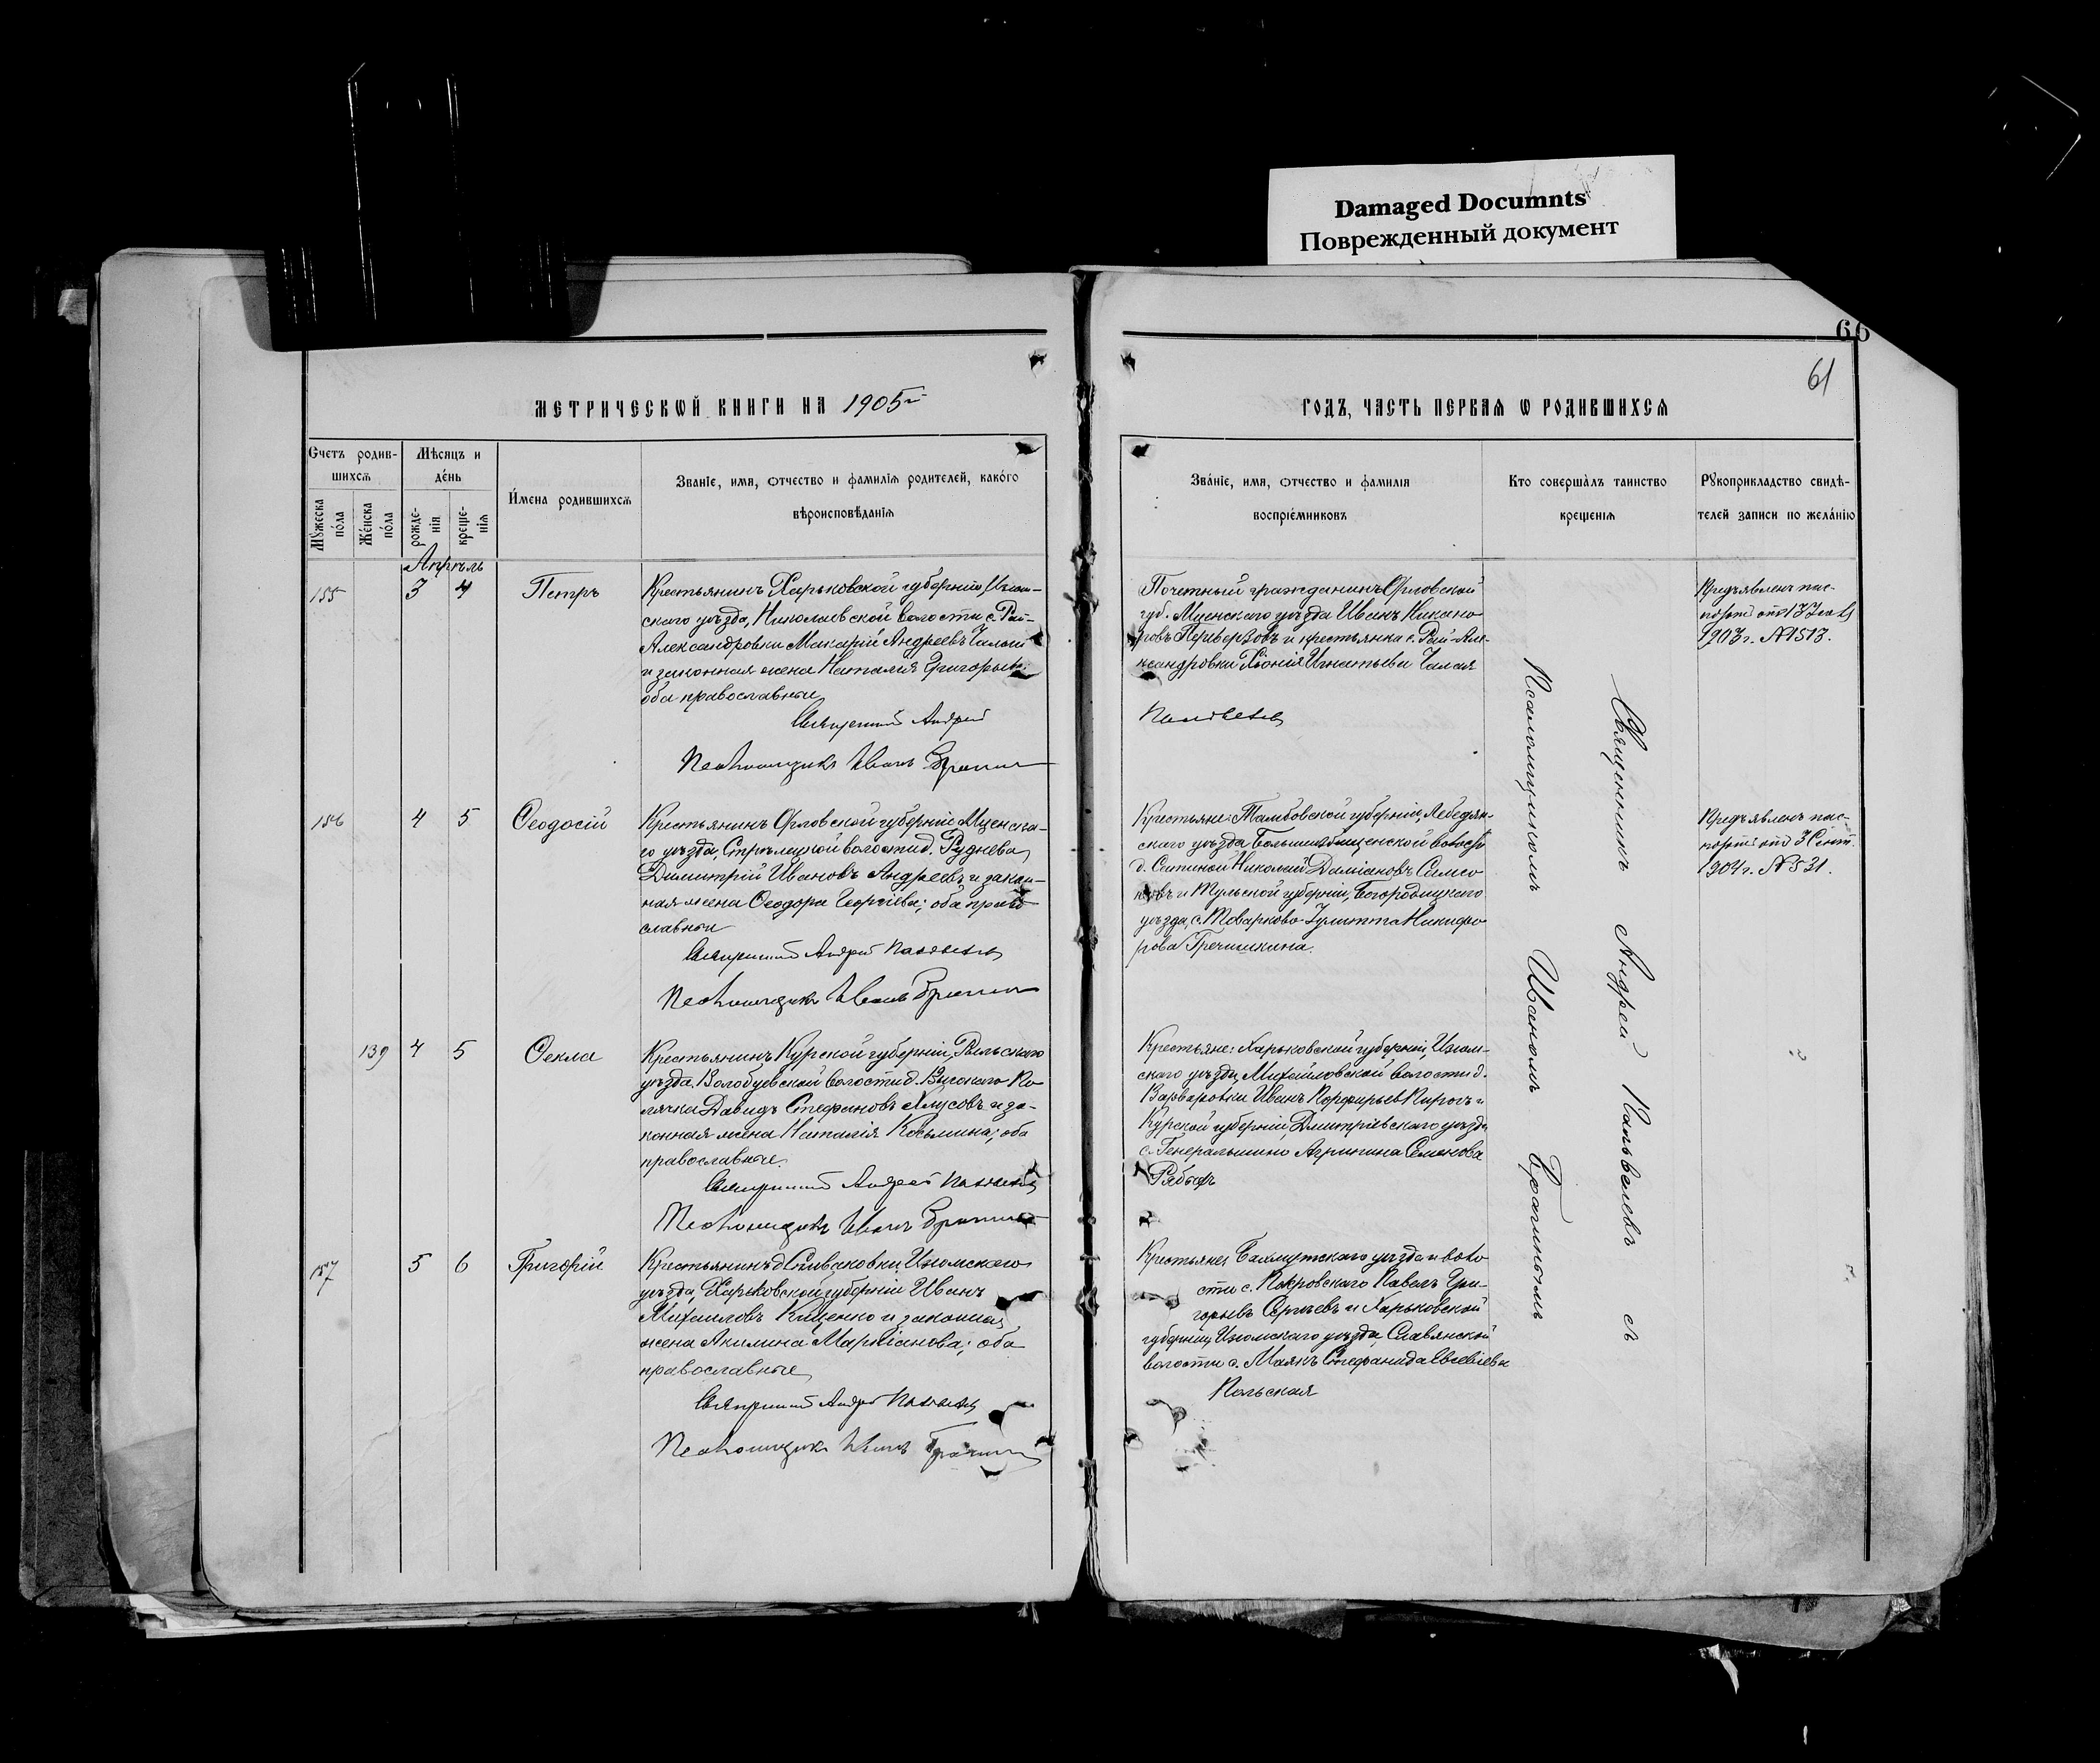 Damaged Documnts
Поврежденный документ
66
61
МЕТРИЧЕСКѠЙ КНИГИ НА 1905й
ГОДЪ, ЧАСТЬ ПЕРВАѦ Ѡ РОДИВШИХСѦ
Счетъ родив-
шихсѧ
Мѣсяцъ и
де́нь
Мꙋ́жеска по́ла
Же́нска по́ла
рожде-нїя
креще-нїѧ
И́мена родившихсѧ
Званїе, имя, ѻтчество и фамилїѧ родителей, како́го
вѣроисповѣ́данїѧ
Зва́нїе, имя, ѻтчество и фамилїя
воспрїе́мниковъ
Кто соверша̀лъ таинство
креще́нїѧ
Рꙋкоприкладство свидѣ-
телей записи по жела́нїю
Апрѣль
155 3 4 Петръ
Крестьянинъ Харьковской губерніи, Изюм-
скаго уѣзда, Николаевской волости с. Рай-
Александровки Макарій Андреевъ Чалый
и законная жена Наталія Григорьева
оба православные
Священникъ Андрей
Псаломщикъ Иванъ Брагинъ
Почетный гражданинъ Орловской
губ. Мценскаго уѣзда Иванъ Никано-
ровъ Переверзовъ и крестьянка с. Рай-Але-
ксандровки Хіонія Игнатьева Чалая
Предъявленъ пас-
портъ отъ
1903 г. №1513.
156 4 5 Ѳеодосій
Крестьянинъ Орловской губерніи Мценска-
го уѣзда, Стрѣлецкой волости д. Руднева
Димитрій Ивановъ Андреевъ и закон-
ная жена Ѳеодора Георгіева; оба право-
славные
Священникъ Андрей
Псаломщикъ Иванъ Брагинъ
Крестьяне: Тамбовской губерніи, Лебедян-
скаго уѣзда волости
д. Николай Даміановъ
и Тульской губерніи, Богородицкаго
уѣзда, с. Товарково Улитта Никифо-
рова Гречишкина.
Предъявленъ пас-
портъ отъ 3 Сент.
1904 г. №531.
139 4 5 Ѳекла
Крестьянинъ Курской губерніи, Рыльскаго
уѣзда, волости д. Высокаго
Давидъ Стефановъ и за-
конная жена Наталія Косьмина; оба
православные.
Священникъ Андрей
Псаломщикъ Иванъ Брагинъ
Крестьяне: Харьковской губерніи, Изюм-
скаго уѣзда, Михайловской волости д.
Варваровки Иванъ Порфирьев Пирогъ и
Курской губерніи, Дмитріевскаго уѣзда
с. Генеральшино Агрипина Семенова
157 5 6 Григорій
Крестьянинъ д. Спиваковки, Изюмскаго
уѣзда, Харьковской губерніи Иванъ
Михаиловъ Кищенко и законная
жена Акилина Маркіанова; оба
православные
Священникъ Андрей
Псаломщикъ Иванъ Брагинъ
Крестьяне, Бахмутскаго уѣзда и воло
сти с. Покровскаго Павелъ Гри-
горьевъ Сергѣевъ и Харьковской
губерніи, Изюмскаго уѣзда, Славянской
волости с. Маякъ Стефанида Евсевіева
Польская
Священникъ Андрей съ
Псаломщикомъ Иваномъ Брагинымъ